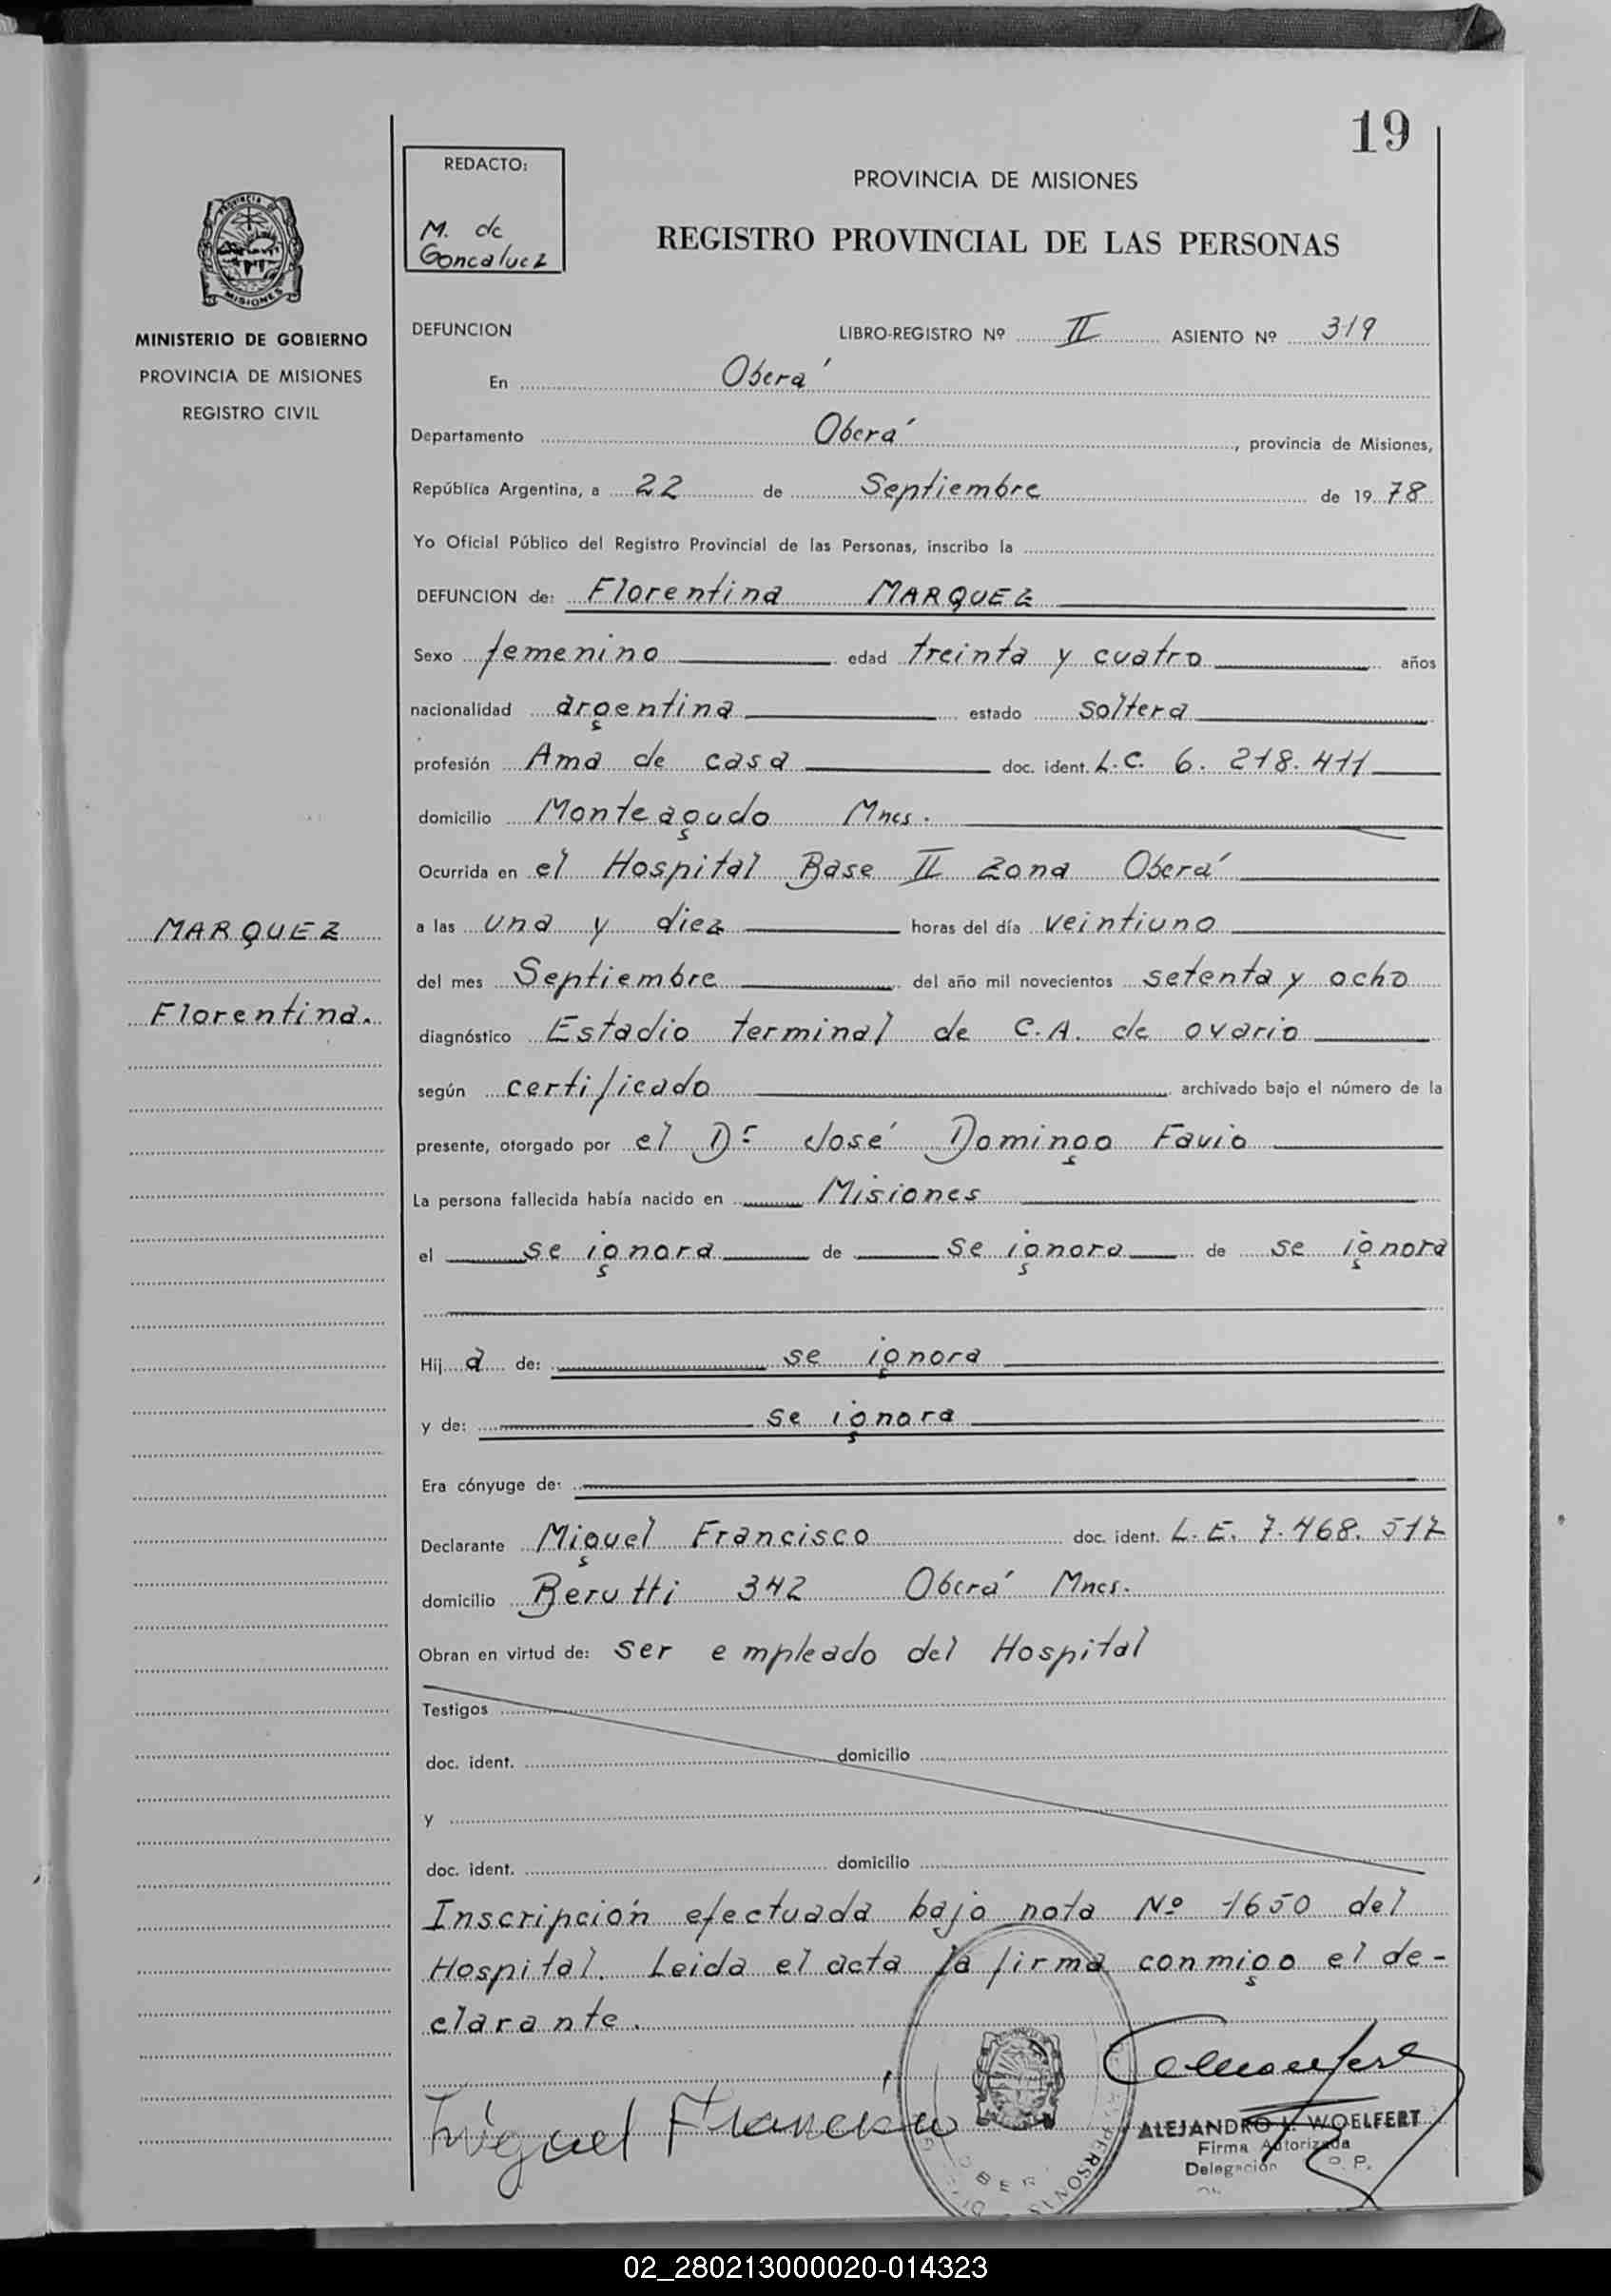 19
REDACTO:
M. de
Goncaluez
PROVINCIA DE MISIONES
REGISTRO PROVINCIAL DE LAS PERSONAS
PROVINCIA DE
MISIONES
MINISTERIO DE GOBIERNO
PROVINCIA DE MISIONES
REGISTRO CIVIL
DEFUNCION LIBRO-REGISTRO Nº II ASIENTO Nº 319
En Oberá
Departamento Oberá, provincia de Misiones,
República Argentina, a 22 de Septiembre de 1978
Yo Oficial Público del Registro Provincial de las Personas, inscribo la
DEFUNCION de: Florentina MARQUEZ
Sexo femenino edad treinta y cuatro años
nacionalidad argentina estado soltera
profesión Ama de casa doc. ident. L.C. 6.218.411
domicilio Monteagudo Mnes.
Ocurrida en el Hospital Base II Zona Oberá
MARQUEZ
Florentina.
a las una y diez horas del día veintiuno
del mes Septiembre del año mil novecientos setenta y ocho
diagnóstico Estadio terminal de C.A. de ovario
según certificado archivado bajo el número de la
presente, otorgado por el Dr José Domingo Favio
La persona fallecida había nacido en Misiones
el se ignora de se ignora de se ignora
Hija de: se ignora
y de: se ignora
Era cónyuge de:
Declarante Miguel Francisco doc. ident. L.E. 7.468.517
domicilio Berutti 342 Oberá Mnes.
Obran en virtud de: ser empleado del Hospital
Testigos
doc. ident. domicilio
y
doc. ident. domicilio
Inscripción efectuada bajo nota Nº 1650 del
Hospital. Leida el acta la firma conmigo el de-
clarante.
Miguel Francisco
ALEJANDRO L. WOELFERT
Firma Autorizada
Delegación
02_280213000020-014323